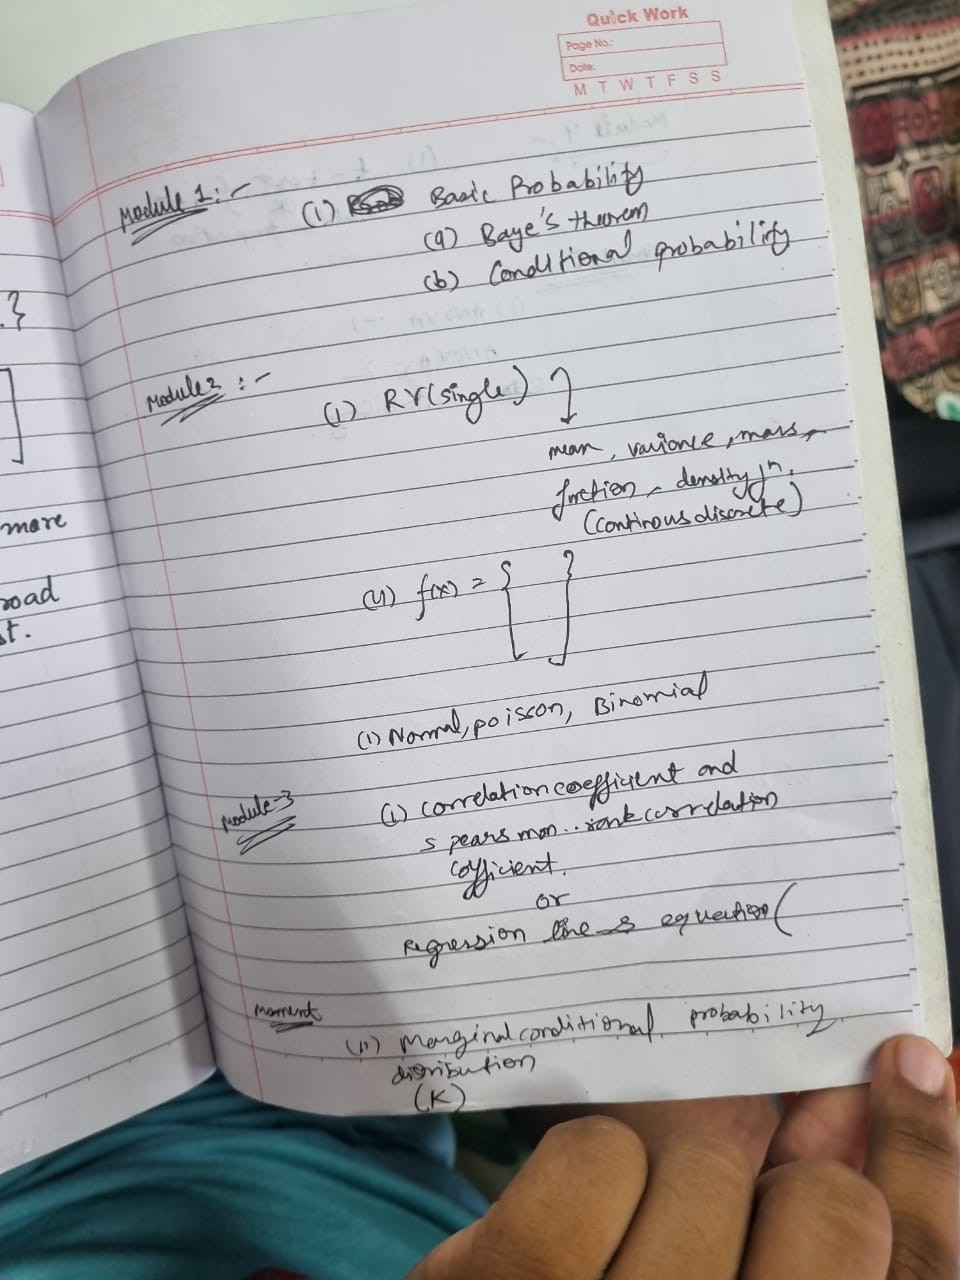 Quick Work
Page No.:
Date:
M T W T F S S
Module 1:-
(i) Basic Probability
(a) Baye's theorem
(b) Conditional probability
.}
]
Module 2 :-
(i) RV(single)
mean, varionce, mass,
function, density fn.
(continous discrete)
more
road
st.
(ii) f(x) = { }
(i) Normal, poisson, Binomial
Module-3
(i) correlation coefficient and
spearsman.. rank correlation
coefficient.
or
Regression line & equation (
Moment
(ii) Marginal conditional probability
distribution
(K)